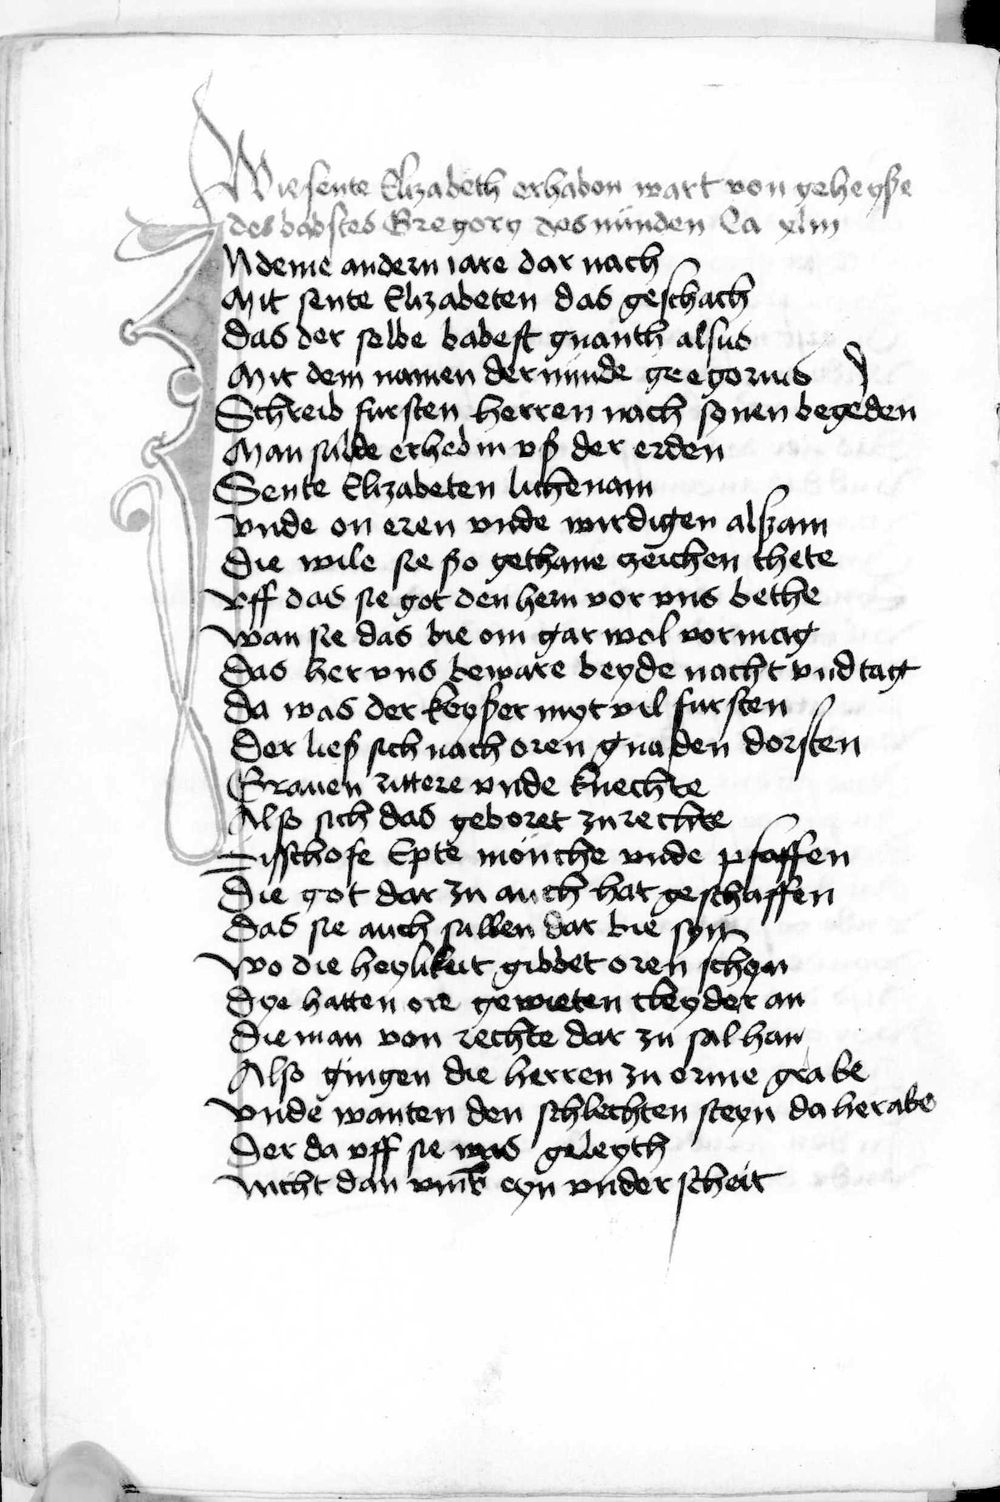 Wie sente Elizabeth erhaben wart von geheysße
des babstes Gregory des nünden Ca xliiij
INdeme andern iare dar nach
Mit sente Elizabeten das geschach
Das der selbe babest gnanth alsus
Mit dem namen der nünde gregorius
Schreib fursten herren nach synen begeden
Man sulde erhebin vß der erden
Sente Elizabeten lichenam
Vnde on eren vnde wirdigen alßam
Die wile sie ßo gethane zeichen thete
Vff das sie got den hern vor vns bethe
Wan sie das bie om gar wol vormag
Das her vns beware beyde nacht vnd tag
Da was der keyßer myt vil fursten
Der ließ sich nach oren gnaden dorsten
Grauen rittere vnde knechte
Also sich das geboret zu rechte
Bisschofe Epte mönche vnde pfaffen
Die got dar zu auch hat geschaffen
Das sie auch sullen dar bie syn
Wo die heylikeit gibbet oren schyn
Dye hatten ore gewieten cleyder an
Die man von rechte dar zu sal han
Also gingen die herren zu orme grabe
Vnde wanten den schlechten steyn da herabe
Der da vff sie was geleyth
Nicht dan vmb eyn vnderscheit